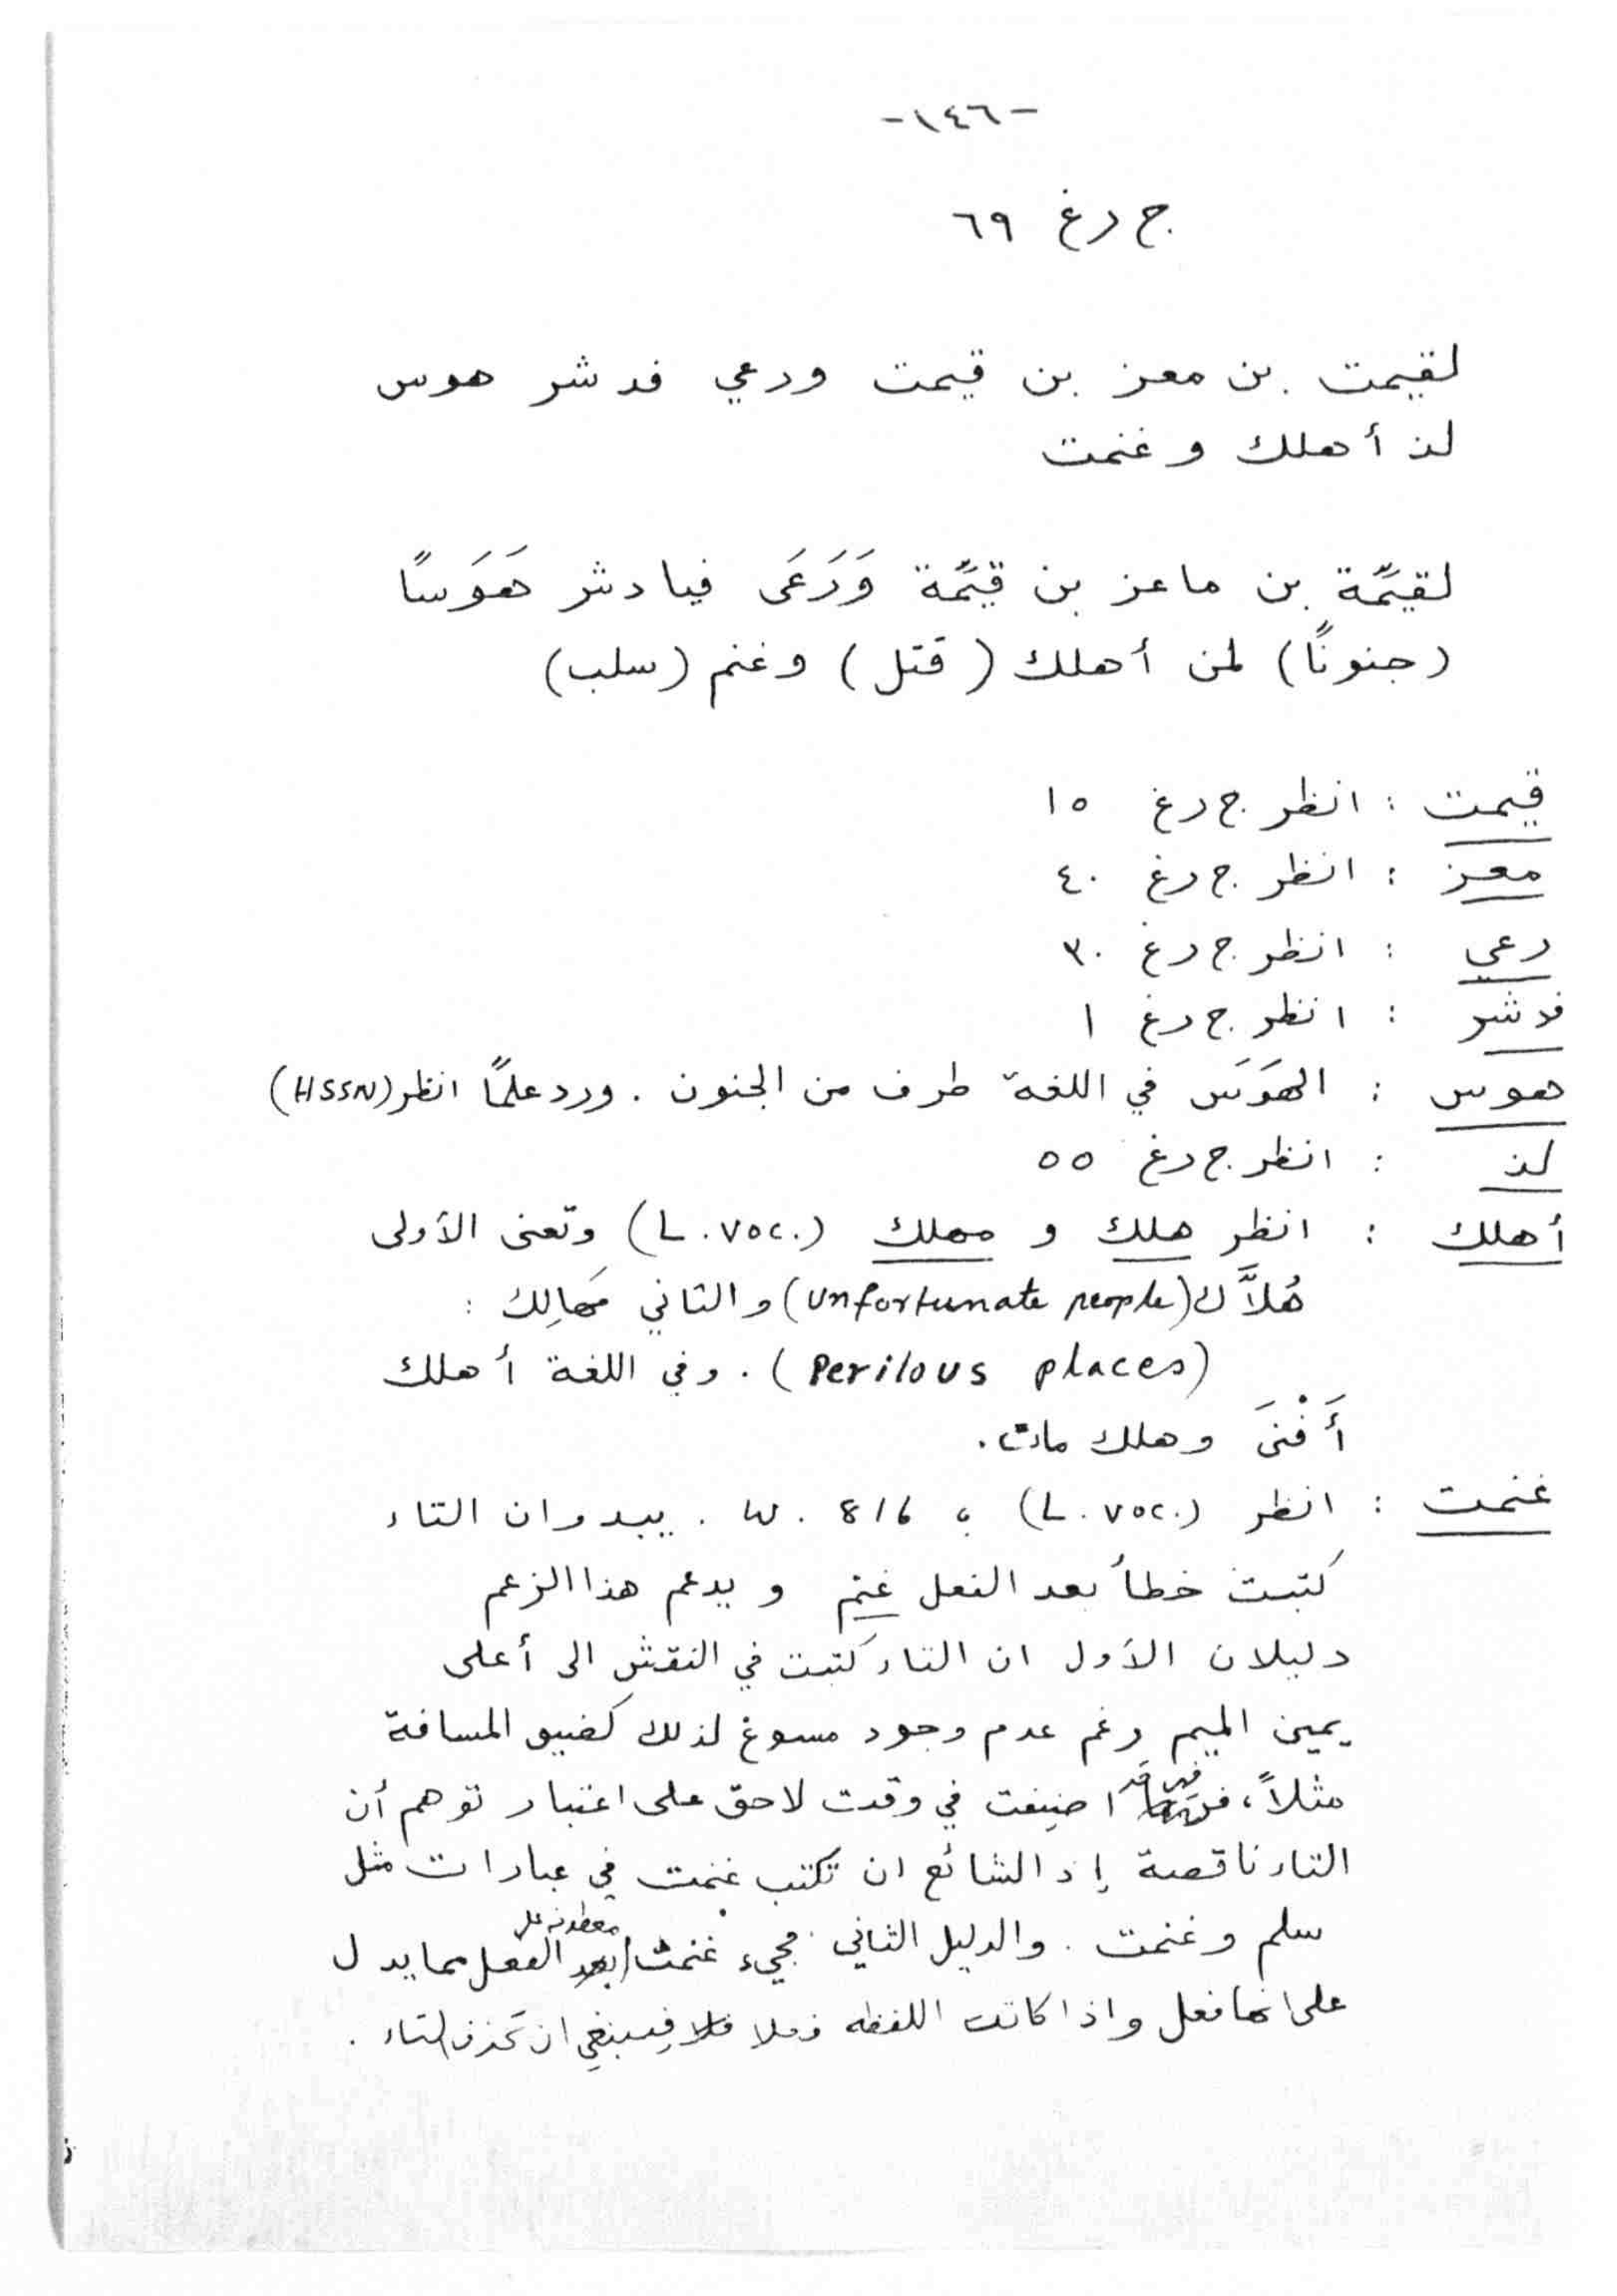 -١٤٦-
ج رغ ٦٩
لقيمت بن معز بن قيمت ورعي فدشر هوس
لذ أهلك وغنمت
لقيِّمة بن ماعز بن قيِّمة وَرَعَى فيادشر هَوَسًا
(جنونًا) لمن أهلك (قتل) وغنم (سلب)
قيمت : انظر ج رغ ١٥
معز : انظر ج رغ ٤٠
رعي : انظر ج رغ ٣٠
فدشر : انظر ج رغ ١
هوس : الهَوَس في اللغة طرف من الجنون . ورد علمًا انظر (HSSN)
لذ : انظر ج رغ ٥٥
أهلك : انظر هلك و مهلك (L.voc.) وتعنى الأولى
هُلاَّك (unfortunate people) والثاني مَهَالِك :
(Perilous places) . وفي اللغة أهلك
أَفْنَى وهلك مات .
غنمت : انظر (L.voc.) ؛ W. 816 . يبدو ان التاء
كتبت خطأ بعد الفعل غنم و يدعم هذا الزعم
دليلان الأول ان التاء كتبت في النقش الى أعلى
يمين الميم رغم عدم وجود مسوغ لذلك كضيق المسافة
مثلاً، اضيفت في وقت لاحق على اعتبار توهم أن
التاء ناقصة إذ الشائع ان تكتب غنمت في عبارات مثل
سلم وغنمت . والدليل الثاني مجيء غنمت معطوفه على الفعل مما يدل
على انها فعل واذا كانت اللفظه فعلا فينبغي ان تحذف التاء .